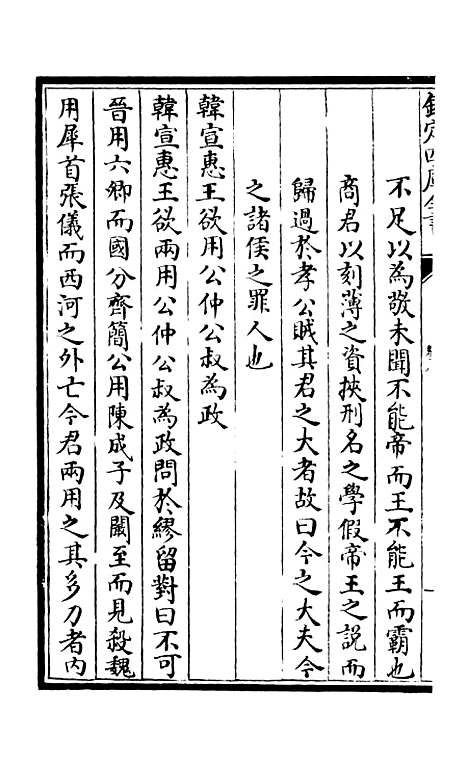 欽定四庫全書
不足以為敬未聞不能帝而王不能王而霸也
商君以刻薄之資挾刑名之學假帝王之説而
歸過於孝公賊其君之大者故曰今之大夫今
之諸侯之罪人也
韓宣惠王欲用公仲公叔為政
韓宣惠王欲兩用公仲公叔為政問於繆留對曰不可
晉用六卿而國分齊簡公用陳成子及闞至而見殺魏
用犀首張儀而西河之外亡今君兩用之其多力者内